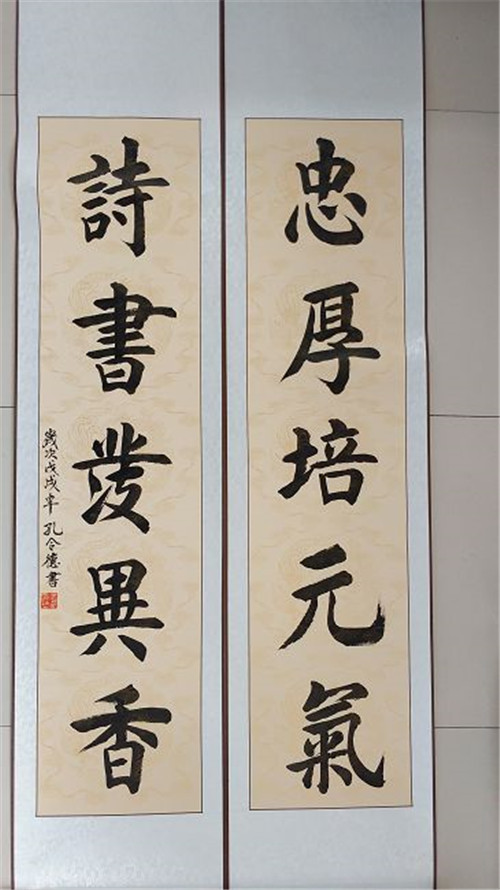 忠厚培元氣
詩書發異香
歲次戊戌年孔令德書